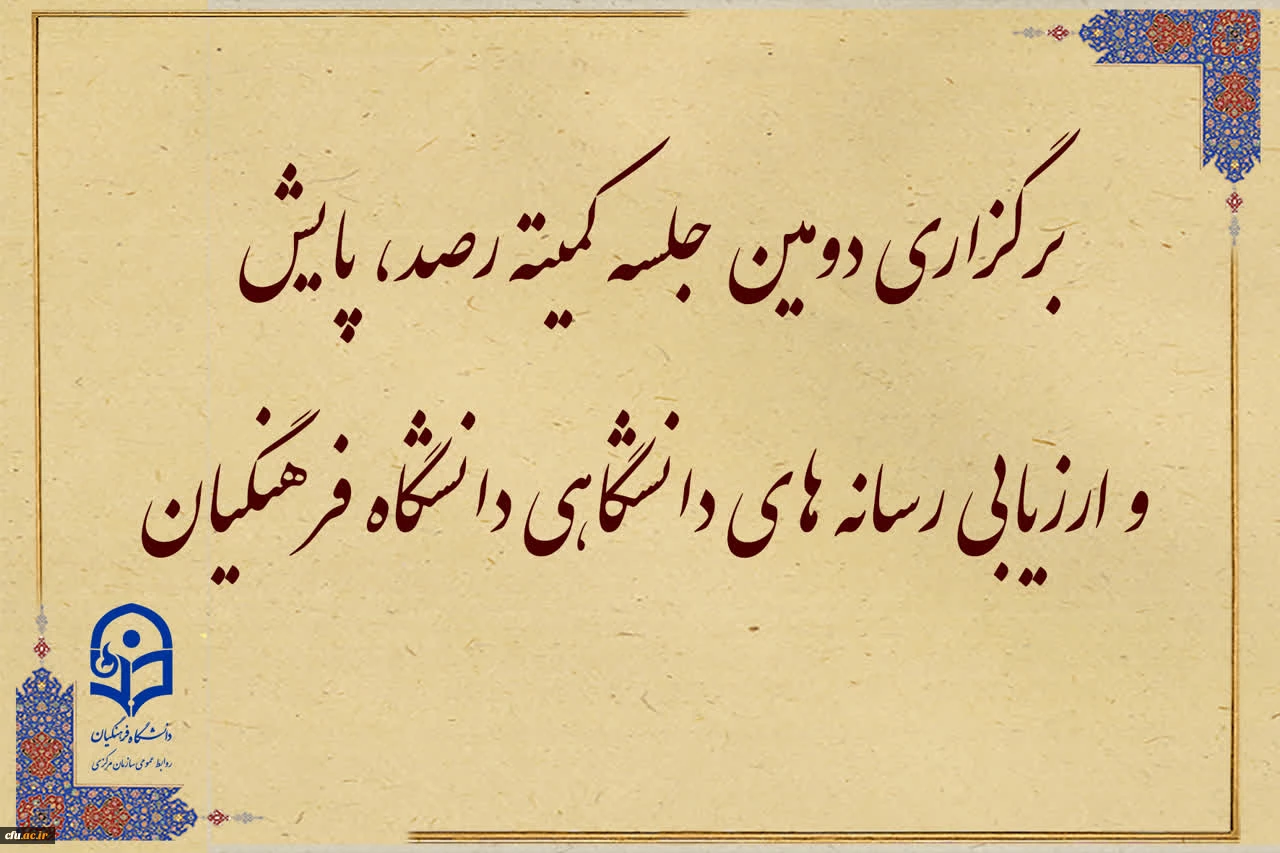 برگزاری دومین جلسه کمیته رصد، پایش
و ارزیابی رسانه های دانشگاهی دانشگاه فرهنگیان
دانشگاه فرهنگیان
روابط عمومی سازمان مرکزی
cfu.ac.ir